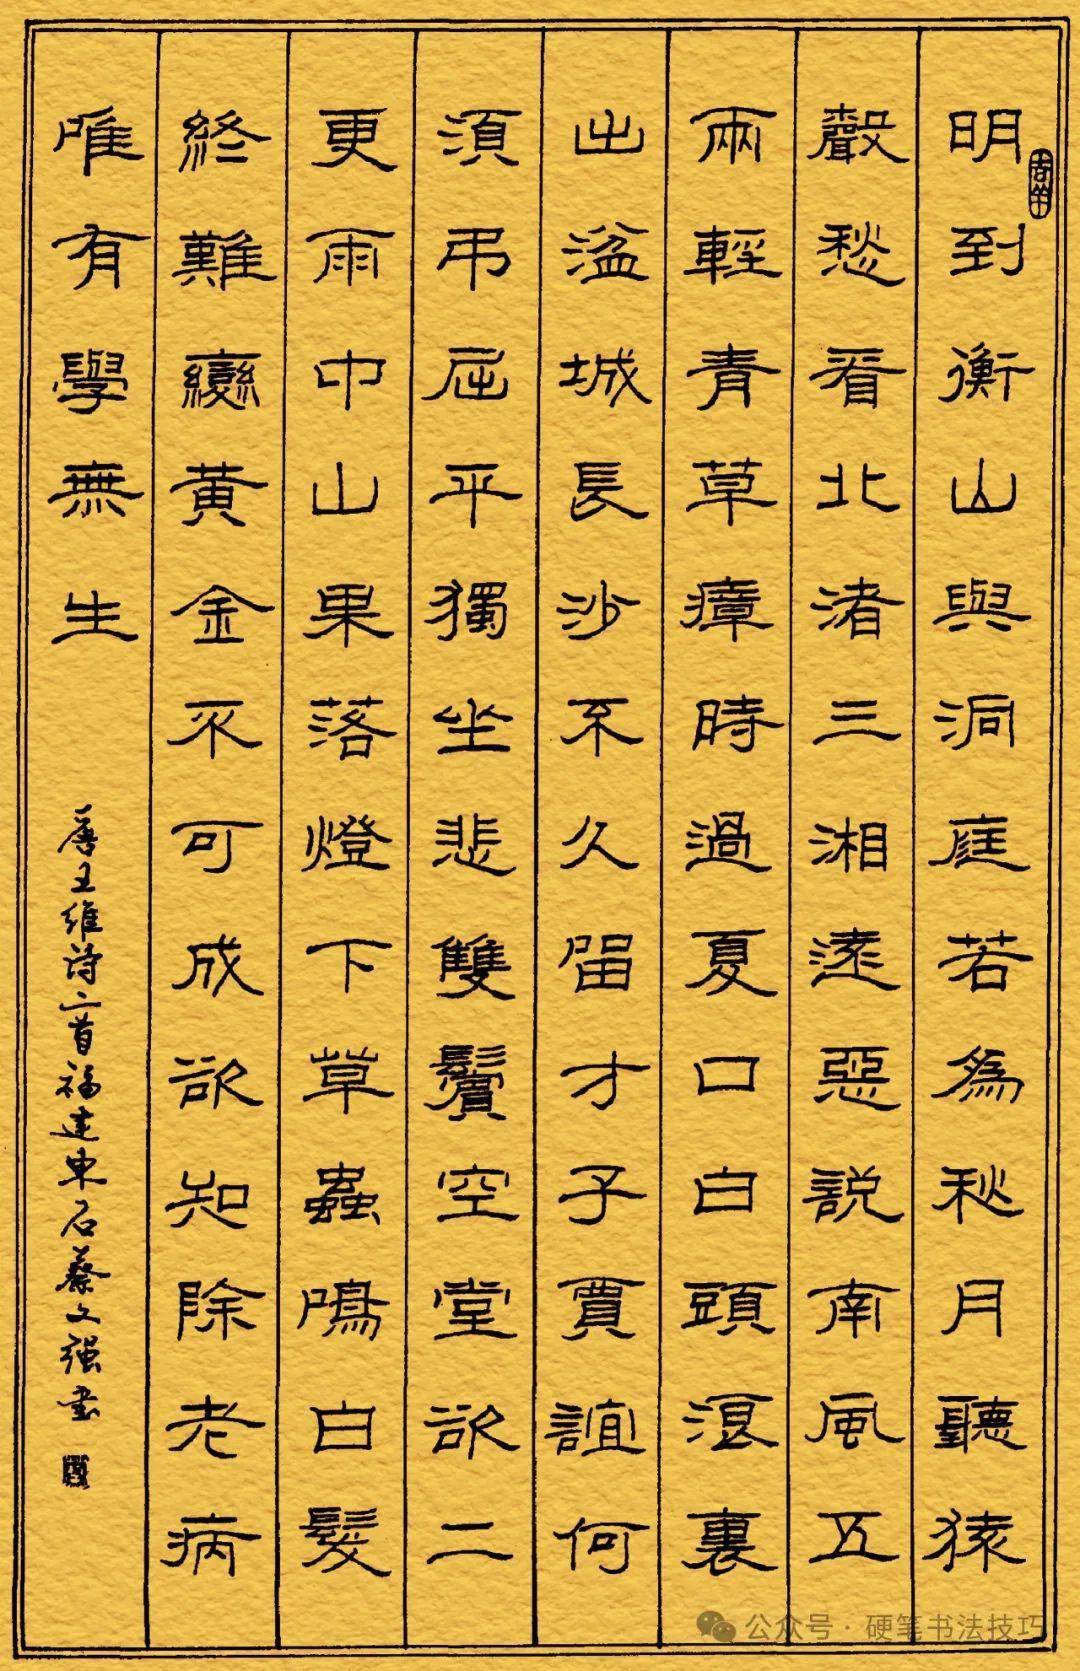 明到衡山與洞庭若為秋月聽猿
聲愁看北渚三湘遠惡說南風五
兩輕青草瘴時過夏口白頭浪裏
出湓城長沙不久留才子賈誼何
須弔屈平獨坐悲雙鬢空堂欲二
更雨中山果落燈下草蟲鳴白髮
終難變黃金不可成欲知除老病
唯有學無生
唐王維诗二首福建東石蔡文强書
公众号 · 硬笔书法技巧